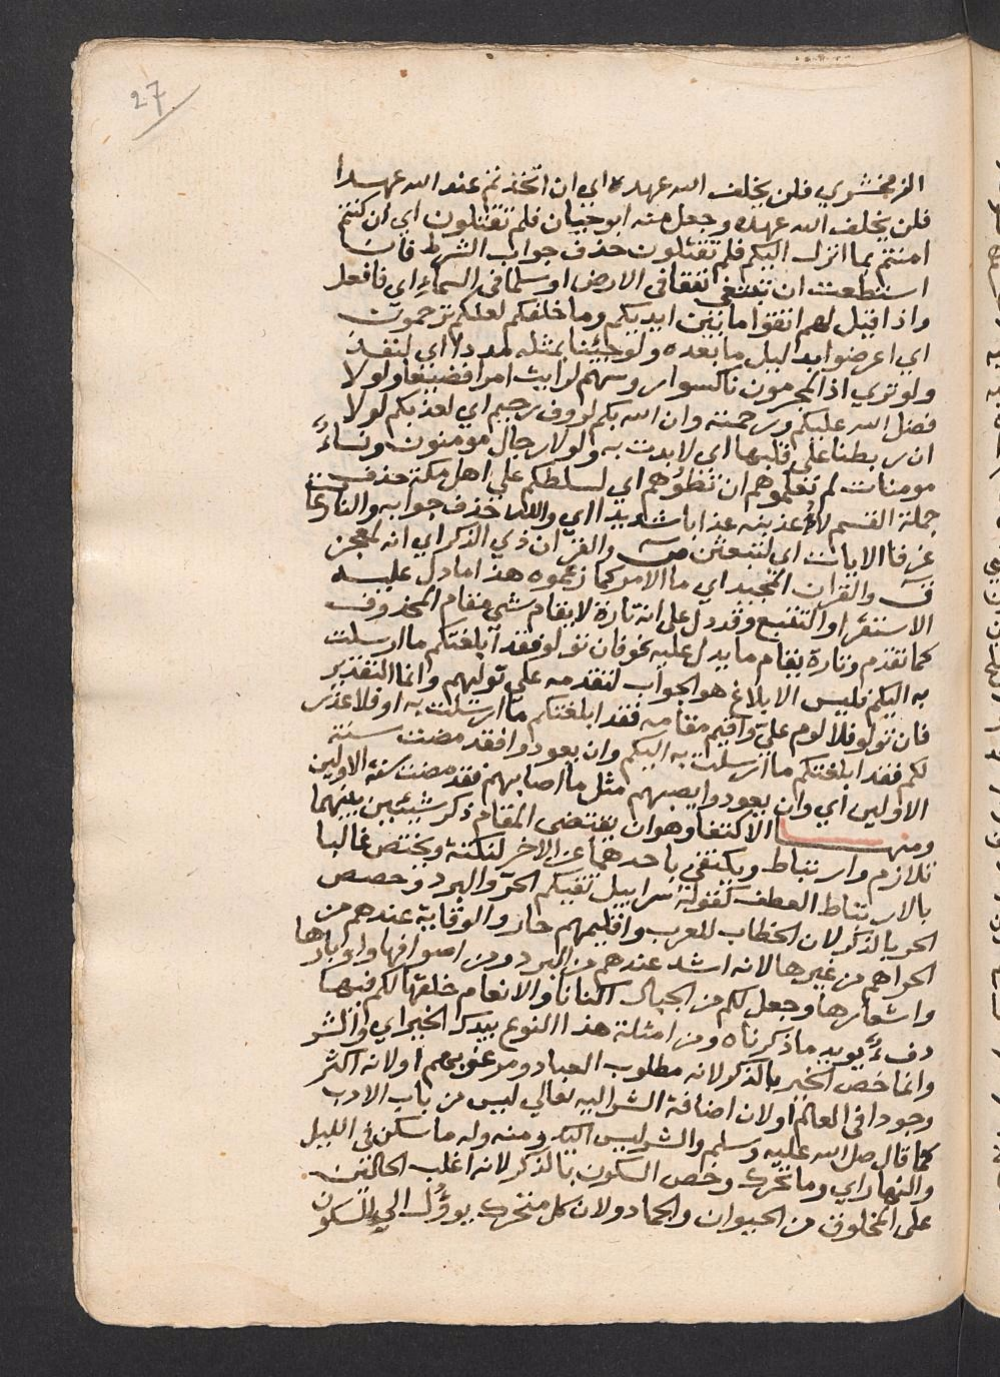 27
الزمخشري فلن يخلف الله عهده اي ان اتخذتم عند الله عهدا
فلن يخلف الله عهده وجعل منه ابو حيان فلم تقتلون اي ان كنتم
امنتم بما انزل اليكم فلم تقتلون حذف جواب الشرط فان
استطعت ان تبتغي نفقا في الارض او سلما في السماء اي فافعل
واذا قيل لهم اتقوا ما بين ايديكم وما خلفكم لعلكم ترحمون
اي اعرضوا بدليل ما بعده ولو جئنا بمثله مددا اي لنفد
ولو تري اذ المجرمون ناكسوا روسهم لرايت امرا فضيعا ولولا
فضل الله عليكم ورحمته وان الله بكم لروف رحيم اي لعذبكم لولا
ان ربطنا علي قلبها اي لابدت به ولولا رجال مومنون ونساء
مومنات لم تعلموهم ان تطؤهم اي لسلطكم علي اهل مكة حذف
جملة القسم لاعذبنه عذابا شديدا اي والله حذف جوابه والنازعات
غرقا الايات اي لتبعثن ص والقران ذي الذكر اي انه لمعجز
ق والقران المجيد اي ما الامر كما زعموه هذا ما دل عليه
الاستقرا والتتبع وقد دل علي انه تارة لا يقام شي مقام المحذوف
كما تقدم وتارة يقام ما يدل عليه نحو فان تولو فقد ابلغتكم ما ارسلت
به اليكم فليس الابلاغ هو الجواب لتقدمه علي توليهم وانما التقدير
فان تولو فلا لوم علي واقيم مقامه فقد ابلغتكم ما ارسلت به او فلا عذر
لكم فقد ابلغتكم ما ارسلت به اليكم وان يعودوا فقد مضت سنة
الاولين اي وان يعودوا يصبهم مثل ما اصابهم فقد مضت سنة الاولين
ومنها الاكتفا وهو ان يقتضي المقام ذكر شيئين بينهما
تلازم وارتباط ويكتفي باحدهما عن الاخر لنكتة ويختص غالبا
بالارتباط العطف كقوله سرابيل تقيكم الحر والبرد وخصص
الحر بالذكر لان الخطاب للعرب واقليمهم حار والوقاية عندهم من
الحر اهم من غيرها لانه اشد عندهم من البرد ومن اصوافها واوبارها
واشعارها وجعل لكم من الجبال اكنانا والانعام خلقها لكم فيها
دفء يويد ما ذكرناه ومن امثلة هذا النوع بيدك الخير اي والشر
وانما خص الخير بالذكر لانه مطلوب العباد ومرغوبهم او لانه اكثر
وجودا في العالم او لان اضافة الشر اليه تعالي ليس من باب الادب
كما قال صلي الله عليه وسلم والشر ليس اليك ومنه وله ما سكن في الليل
والنهار اي وما تحرك وخص السكون بالذكر لانه اغلب الحالتين
علي المخلوق من الحيوان والجماد ولان كل متحرك يوؤل الي السكون